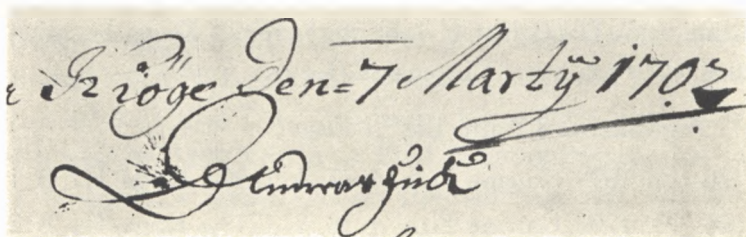 Kiöge Den=7 Martÿ 1702
Andreas